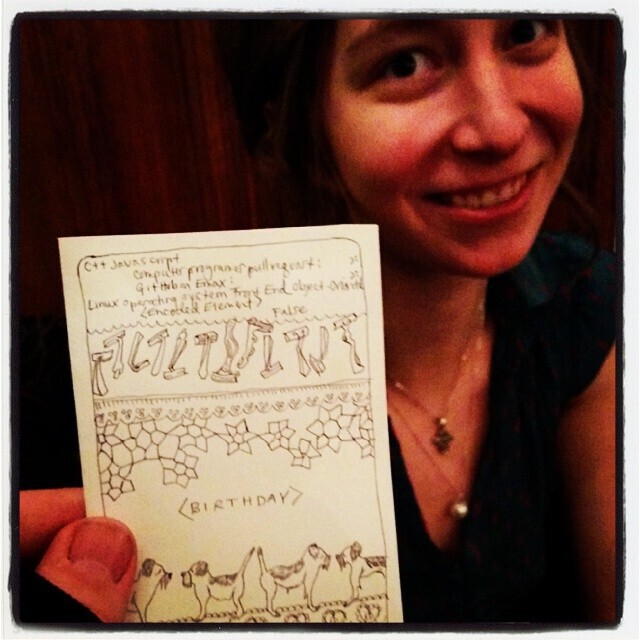 C++ Javascript
Computer programer pull request:
Github Emax:
Linux operating system Front End Object-Oriente
<Encoded Element> False
<BIRTHDAY>